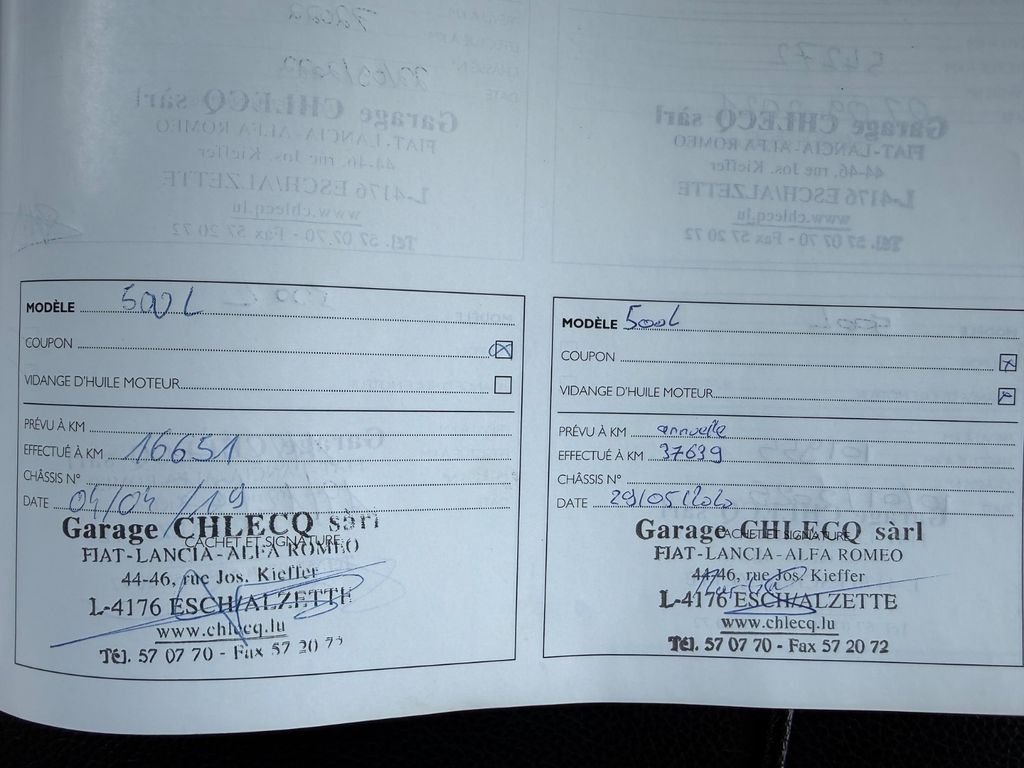 MODÈLE 500L
COUPON
VIDANGE D'HUILE MOTEUR
PRÉVU À KM
EFFECTUÉ À KM 16651
CHÂSSIS N°
DATE 04/04/19
CACHET ET SIGNATURE
Garage CHLECQ sàrl
FIAT-LANCIA-ALFA ROMEO
44-46, rue Jos. Kieffer
L-4176 ESCH/ALZETTE
www.chlecq.lu
Tél. 57 07 70 - Fax 57 20 72
MODÈLE 500L
COUPON
VIDANGE D'HUILE MOTEUR
PRÉVU À KM annuelle
EFFECTUÉ À KM 37639
CHÂSSIS N°
DATE 29/05/2020
CACHET ET SIGNATURE
Garage CHLECQ sàrl
FIAT-LANCIA-ALFA ROMEO
44-46, rue Jos. Kieffer
L-4176 ESCH/ALZETTE
www.chlecq.lu
Tél. 57 07 70 - Fax 57 20 72